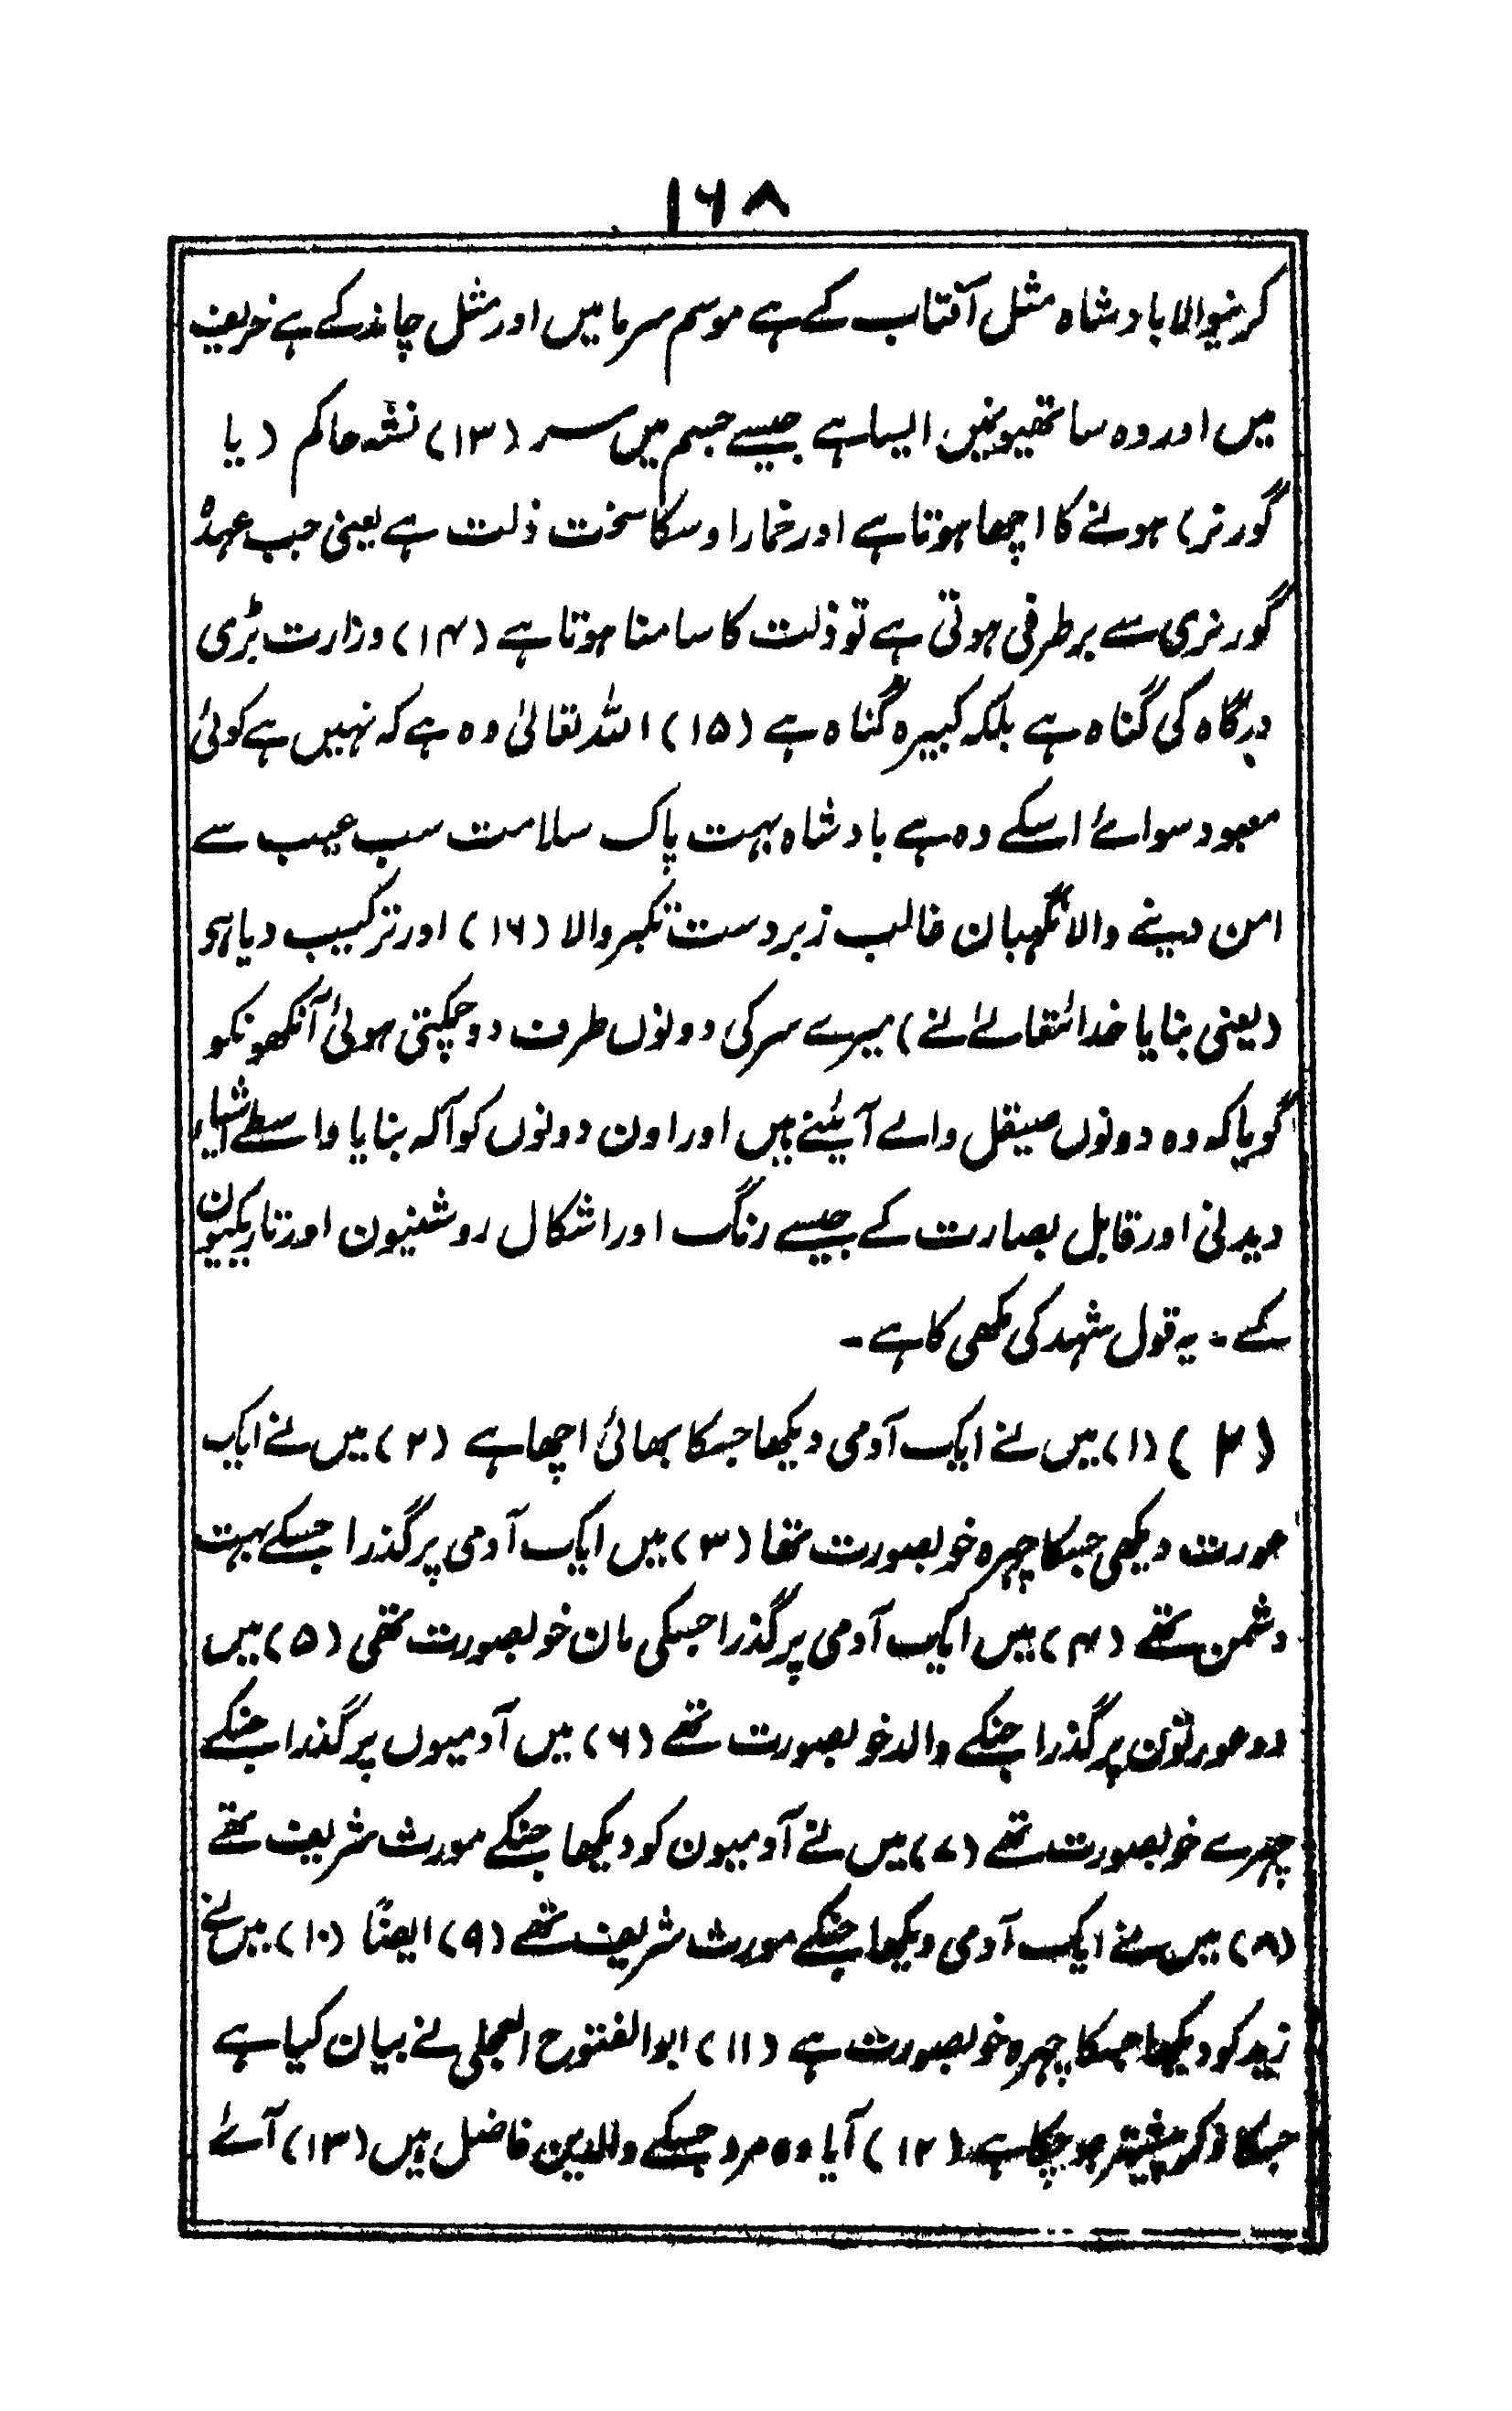 ۱۶۸
کرنیوالا بادشاہ مثل آفتاب کے ہے موسم سرما میں اور مثل چاند کے ہے خریف
میں اور وہ ساتھیونمیں ایسا ہے جیسے جسم میں سر (۱۳) نشہ حاکم (یا
گورنر) ہونے کا اچھا ہوتا ہے اور خمار اوسکا سخت ذلت ہے یعنی جب عہدۂ
گورنری سے برطرفی ہوتی ہے تو ذلت کا سامنا ہوتا ہے (۱۴) وزارت بڑی
درگاہ کی گناہ ہے بلکہ کبیرہ گناہ ہے (۱۵) اللہ تعالیٰ وہ ہے کہ نہیں ہے کوئی
معبود سوائے اسکے وہ ہے بادشاہ بہت پاک سلامت سب عیب سے
امن دینے والا نگہبان غالب زبردست تکبر والا (۱۶) اور ترکیب دیا ہو
(یعنی بنایا خدائتعالےٰ نے) میرے سر کی دونوں طرف دو چمکتی ہوئی آنکھونکو
گویا کہ وہ دونوں صیقل والے آیئنے ہیں اور اون دونوں کو آلہ بنایا واسطے اشیاء
دیدنی اور قابل بصارت کے جیسے رنگ اور اشکال روشنیون اور تاریکیون
کے ۔ یہ قول شہد کی مکھی کا ہے ۔
(۲) (۱) میں نے ایک آدمی دیکھا جسکا بھائی اچھا ہے (۲) میں نے ایک
عورت دیکھی جسکا چہرہ خوبصورت تھا (۳) میں ایک آدمی پر گذرا جسکے بہت
دشمن تھے (۴) میں ایک آدمی پر گذرا جسکی مان خوبصورت تھی (۵) میں
دو عورتون پر گذرا جنکے والد خوبصورت تھے (۶) میں آدمیوں پر گذرا جنکے
چہرے خوبصورت تھے (۷) میں نے آدمیون کو دیکھا جنکے مورث شریف تھے
(۸) میں نے ایک آدمی دیکھا جنکے مورث شریف تھے (۹) ایضاً (۱۰) میں نے
زید کو دیکھا جسکا چہرہ خوبصورت ہے (۱۱) ابوالفتوح العجلی نے بیان کیا ہے
جسکا ذکر پیشتر ہو چکا ہے (۱۲) آیا وہ مرد جسکے والدین فاضل ہیں (۱۳) آئے